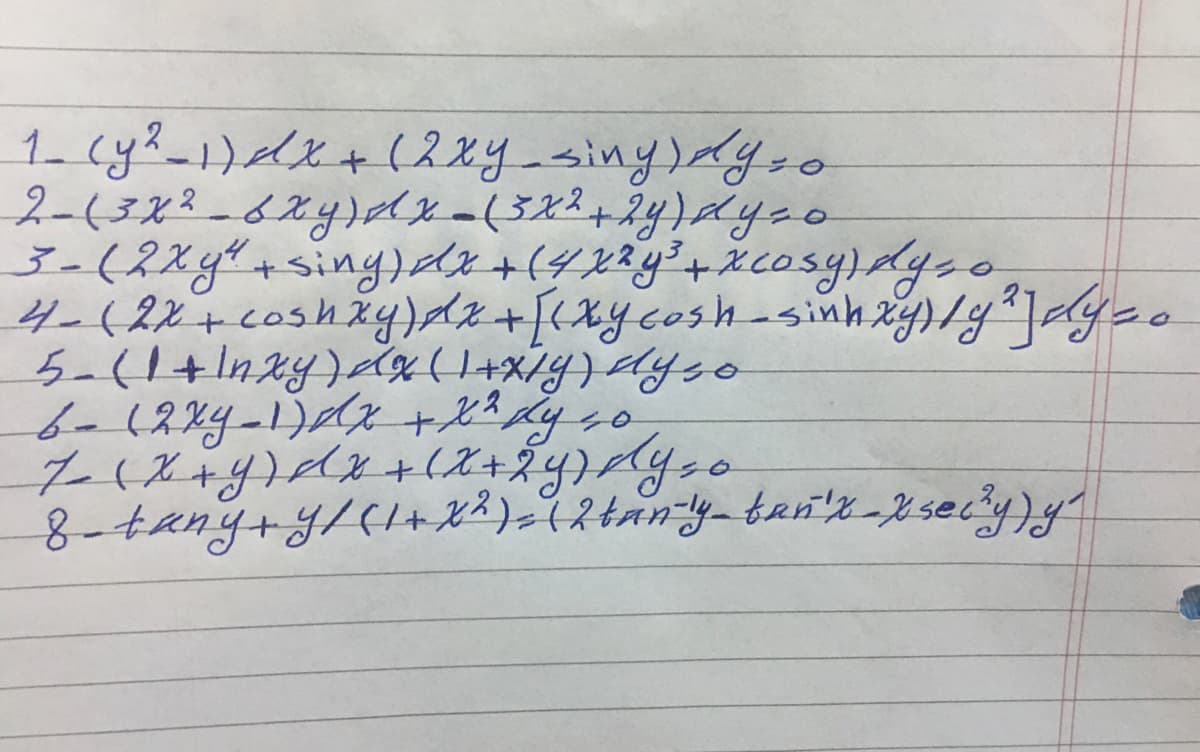 1- (y²-1)dx + (2xy - siny)dy = 0
2- (3x² - 6xy)dx - (3x² + 2y)dy = 0
3- (2xy⁴ + siny)dx + (4x²y³ + xcosy)dy = 0
4- (2x + coshxy)dx + [(xycosh - sinhxy)/y²]dy = 0
5- (1 + lnxy)dx(1+x/y)dy = 0
6- (2xy-1)dx + x²dy = 0
7- (x+y)dx + (x+2y)dy = 0
8- tany + y/(1+x²) = (2tan⁻¹y - tan⁻¹x - xsec²y)y'